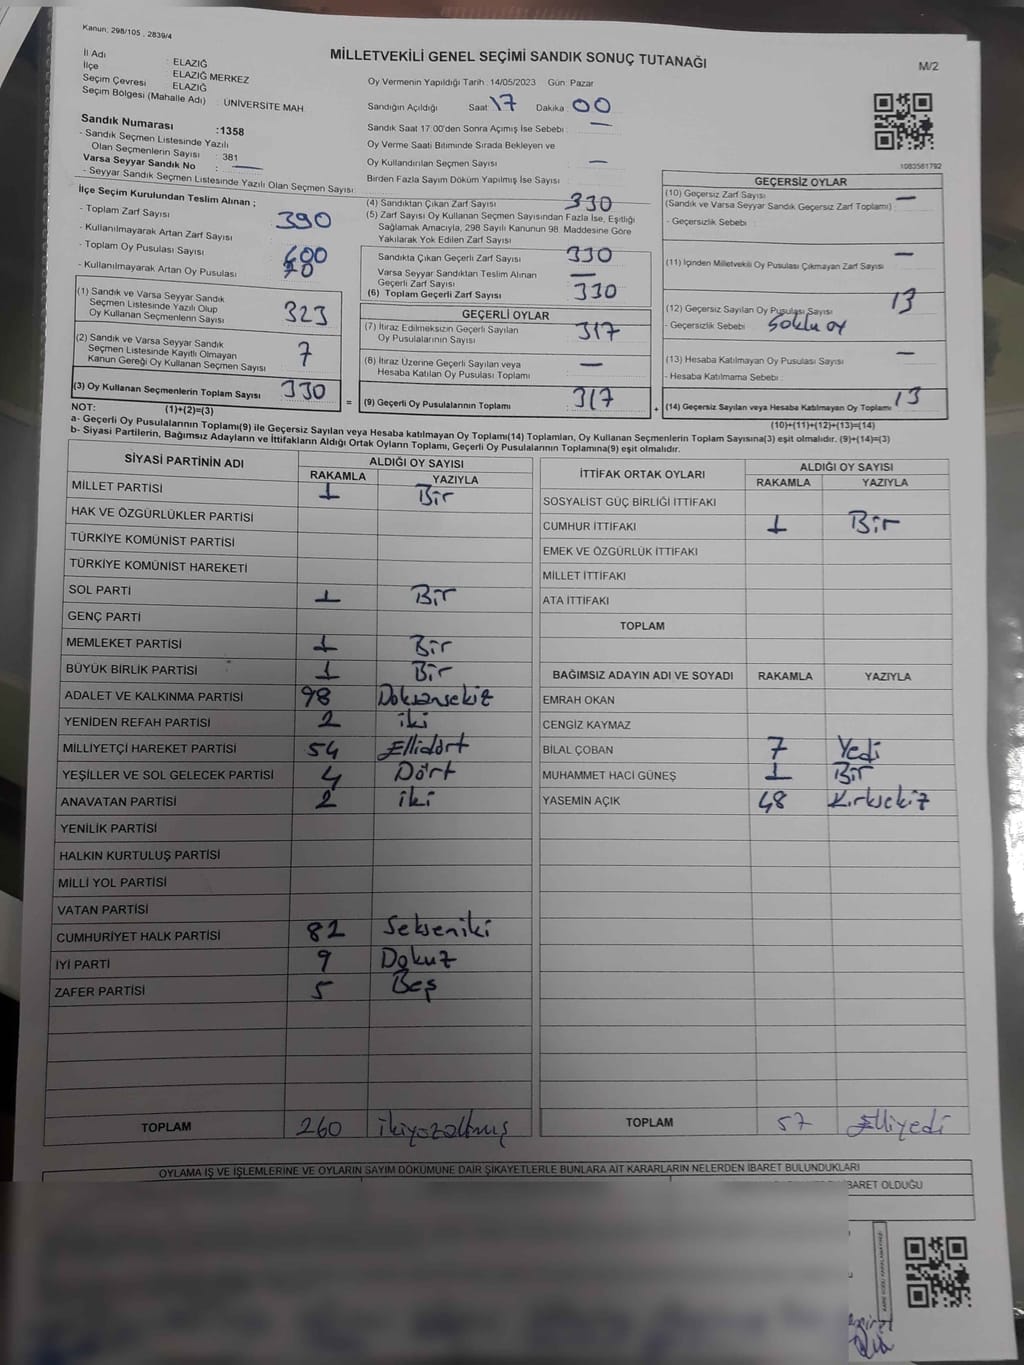 Kanun: 298/105 , 2839/4
MİLLETVEKİLİ GENEL SEÇİMİ SANDIK SONUÇ TUTANAĞI
M/2
İl Adı : ELAZIĞ
İlçe : ELAZIĞ MERKEZ
Seçim Çevresi : ELAZIĞ
Seçim Bölgesi (Mahalle Adı) : ÜNİVERSİTE MAH.
Sandık Numarası :1358
- Sandık Seçmen Listesinde Yazılı
Olan Seçmenlerin Sayısı : 381
Varsa Seyyar Sandık No : —
- Seyyar Sandık Seçmen Listesinde Yazılı Olan Seçmen Sayısı:
Oy Vermenin Yapıldığı Tarih :14/05/2023 Gün: Pazar
Sandığın Açıldığı Saat: 17 Dakika: 00
Sandık Saat 17.00'den Sonra Açımış İse Sebebi : —
Oy Verme Saati Bitiminde Sırada Bekleyen ve
Oy Kullandırılan Seçmen Sayısı : —
Birden Fazla Sayım Döküm Yapılmış İse Sayısı :
1083581792
İlçe Seçim Kurulundan Teslim Alınan ;
- Toplam Zarf Sayısı 390
- Kullanılmayarak Artan Zarf Sayısı
- Toplam Oy Pusulası Sayısı
- Kullanılmayarak Artan Oy Pusulası
(1) Sandık ve Varsa Seyyar Sandık
Seçmen Listesinde Yazılı Olup
Oy Kullanan Seçmenlerin Sayısı 323
(2) Sandık ve Varsa Seyyar Sandık
Seçmen Listesinde Kayıtlı Olmayan
Kanun Gereği Oy Kullanan Seçmen Sayısı 7
(3) Oy Kullanan Seçmenlerin Toplam Sayısı 330
(4) Sandıktan Çıkan Zarf Sayısı 330
(5) Zarf Sayısı Oy Kullanan Seçmen Sayısından Fazla İse, Eşitliği
Sağlamak Amacıyla, 298 Sayılı Kanunun 98. Maddesine Göre
Yakılarak Yok Edilen Zarf Sayısı
Sandıkta Çıkan Geçerli Zarf Sayısı 330
Varsa Seyyar Sandıktan Teslim Alınan
Geçerli Zarf Sayısı —
(6) Toplam Geçerli Zarf Sayısı 330
GEÇERLİ OYLAR
(7) İtiraz Edilmeksizin Geçerli Sayılan
Oy Pusulalarının Sayısı 317
(8) İtiraz Üzerine Geçerli Sayılan veya
Hesaba Katılan Oy Pusulası Toplamı —
= (9) Geçerli Oy Pusulalarının Toplamı 317
GEÇERSİZ OYLAR
(10) Geçersiz Zarf Sayısı
(Sandık ve Varsa Seyyar Sandık Geçersiz Zarf Toplamı) —
- Geçersizlik Sebebi :
(11) İçinden Milletvekili Oy Pusulası Çıkmayan Zarf Sayısı —
(12) Geçersiz Sayılan Oy Pusulası Sayısı 13
- Geçersizlik Sebebi :
(13) Hesaba Katılmayan Oy Pusulası Sayısı —
- Hesaba Katılmama Sebebi :
+ (14) Geçersiz Sayılan veya Hesaba Katılmayan Oy Toplamı 13
NOT: (1)+(2)=(3)
(10)+(11)+(12)+(13)=(14)
a- Geçerli Oy Pusulalarının Toplamı(9) ile Geçersiz Sayılan veya Hesaba katılmayan Oy Toplamı(14) Toplamları, Oy Kullanan Seçmenlerin Toplam Sayısına(3) eşit olmalıdır. (9)+(14)=(3)
b- Siyasi Partilerin, Bağımsız Adayların ve İttifakların Aldığı Ortak Oyların Toplamı, Geçerli Oy Pusulalarının Toplamına(9) eşit olmalıdır.
SİYASİ PARTİNİN ADI ALDIĞI OY SAYISI
RAKAMLA YAZIYLA
MİLLET PARTİSİ 1 Bir
HAK VE ÖZGÜRLÜKLER PARTİSİ
TÜRKİYE KOMÜNİST PARTİSİ
TÜRKİYE KOMÜNİST HAREKETİ
SOL PARTİ 1 Bir
GENÇ PARTİ
MEMLEKET PARTİSİ 1 Bir
BÜYÜK BİRLİK PARTİSİ 1 Bir
ADALET VE KALKINMA PARTİSİ 98 Doksansekiz
YENİDEN REFAH PARTİSİ 2 iki
MİLLİYETÇİ HAREKET PARTİSİ 54 Ellidört
YEŞİLLER VE SOL GELECEK PARTİSİ 4 Dört
ANAVATAN PARTİSİ 2 iki
YENİLİK PARTİSİ
HALKIN KURTULUŞ PARTİSİ
MİLLİ YOL PARTİSİ
VATAN PARTİSİ
CUMHURİYET HALK PARTİSİ 82 Sekseniki
İYİ PARTİ 9 Dokuz
ZAFER PARTİSİ 5 Beş
TOPLAM 260 ikiyüzaltmış
İTTİFAK ORTAK OYLARI ALDIĞI OY SAYISI
RAKAMLA YAZIYLA
SOSYALİST GÜÇ BİRLİĞİ İTTİFAKI
CUMHUR İTTİFAKI 1 Bir
EMEK VE ÖZGÜRLÜK İTTİFAKI
MİLLET İTTİFAKI
ATA İTTİFAKI
TOPLAM
BAĞIMSIZ ADAYIN ADI VE SOYADI RAKAMLA YAZIYLA
EMRAH OKAN
CENGİZ KAYMAZ
BİLAL ÇOBAN 7 Yedi
MUHAMMET HACI GÜNEŞ 1 Bir
YASEMİN AÇIK 48 Kırksekiz
TOPLAM 57 Elliyedi
OYLAMA İŞ VE İŞLEMLERİNE VE OYLARIN SAYIM DÖKÜMÜNE DAİR ŞİKAYETLERLE BUNLARA AİT KARARLARIN NELERDEN İBARET BULUNDUKLARI
İBARET OLDUĞU